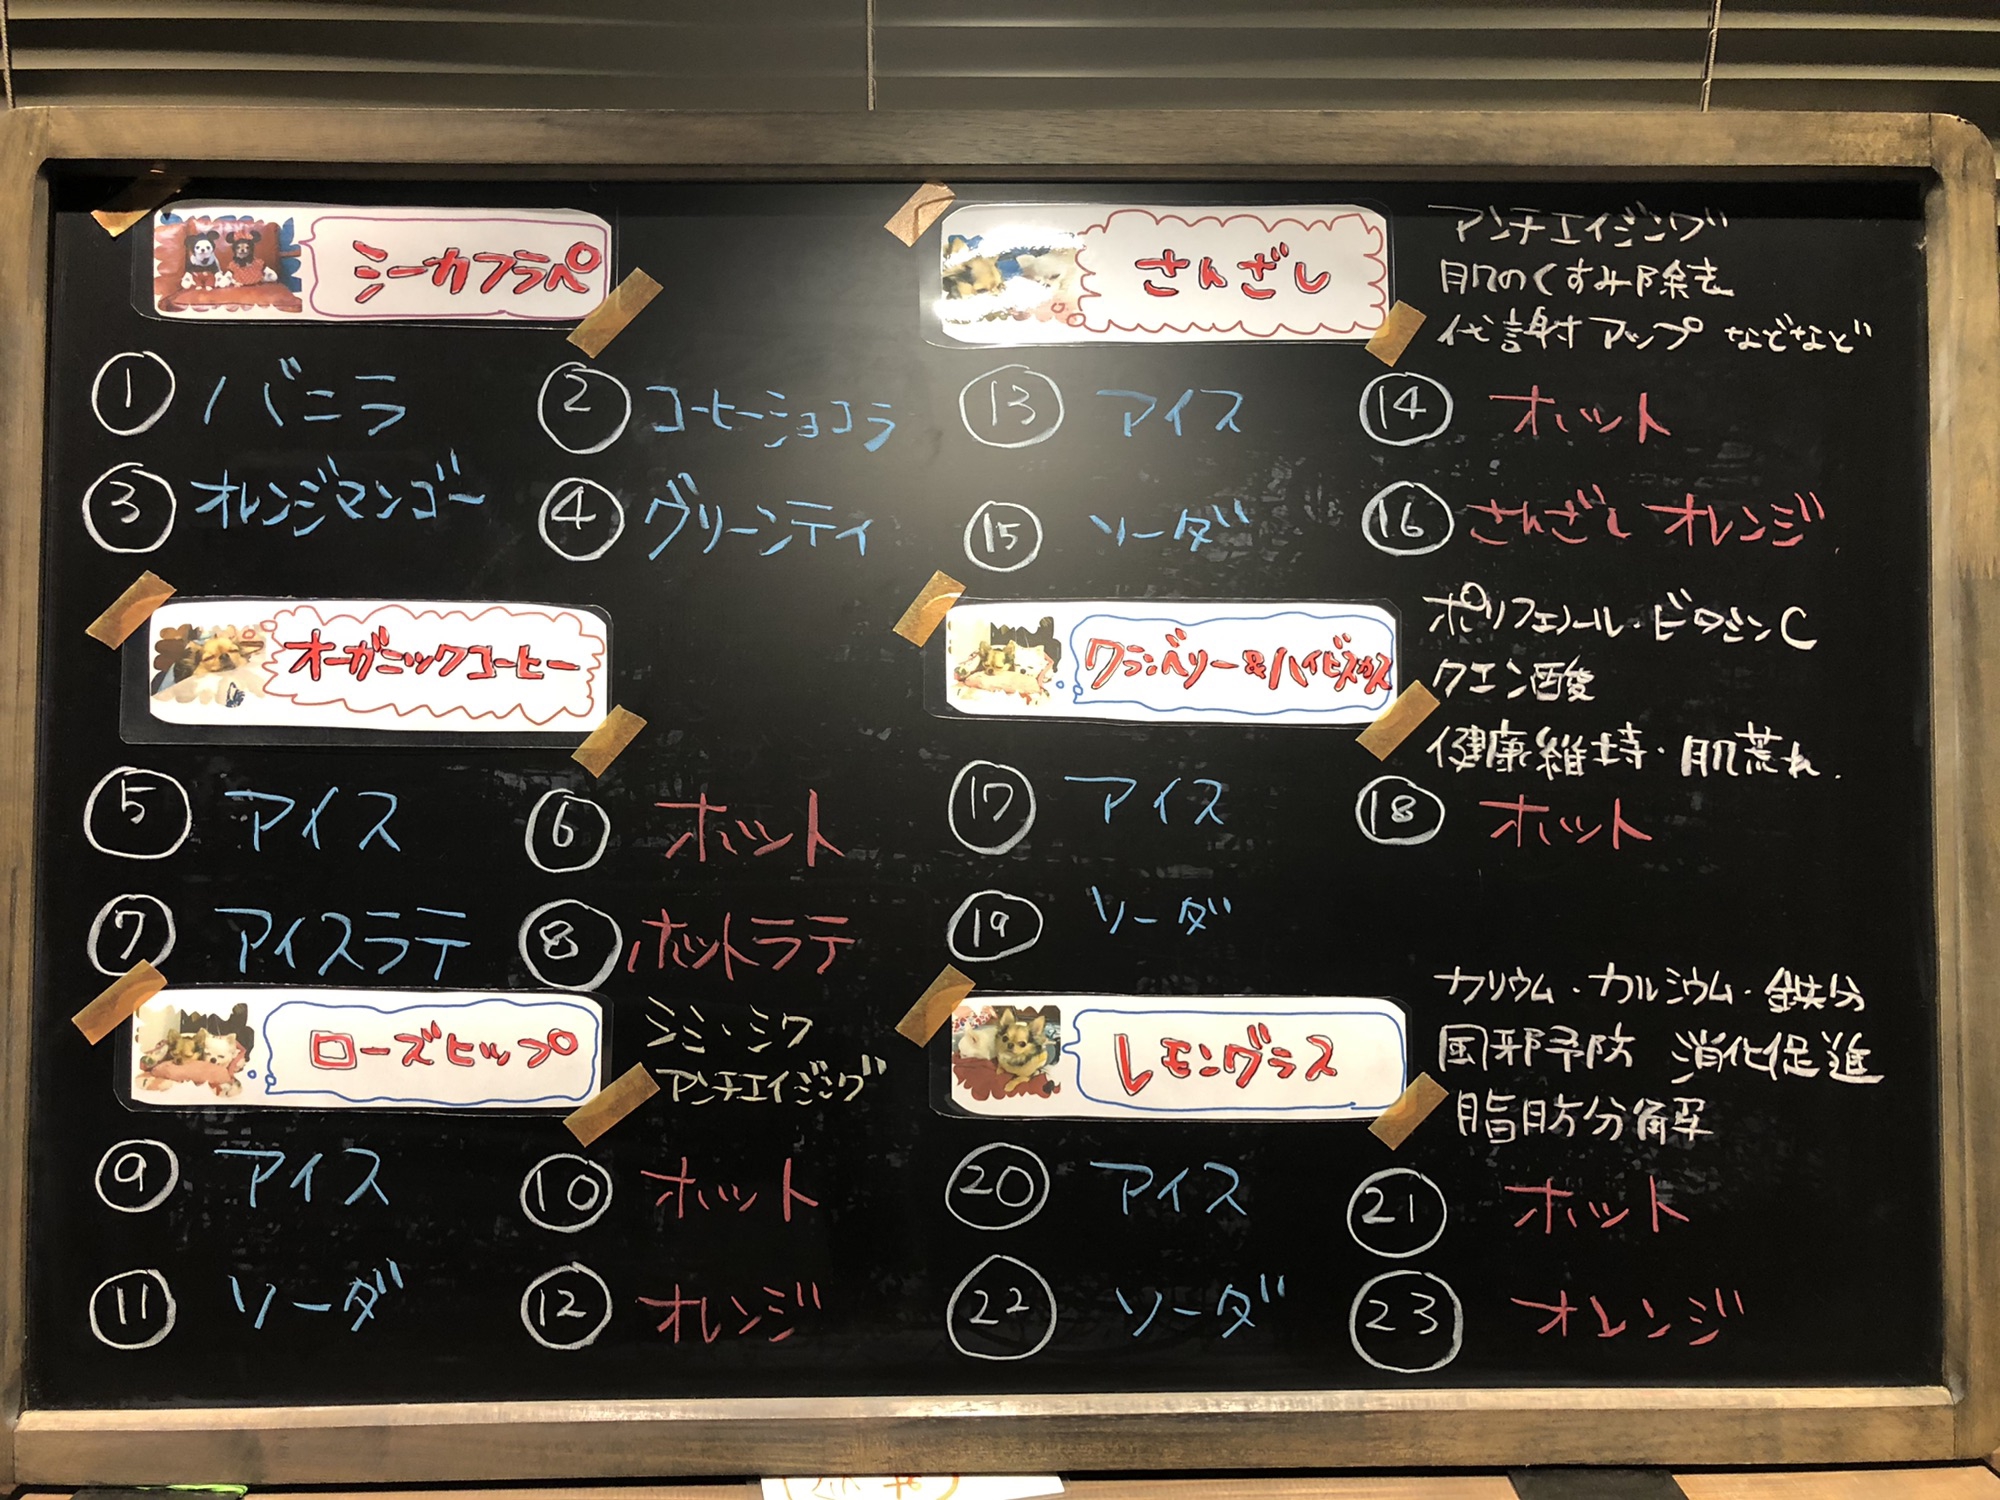 シーカフラペ
① バニラ ② コーヒーショコラ
③ オレンジマンゴー ④ グリーンティ
オーガニックコーヒー
⑤ アイス ⑥ ホット
⑦ アイスラテ ⑧ ホットラテ
ローズヒップ
シミ・シワ
アンチエイジング
⑨ アイス ⑩ ホット
⑪ ソーダ ⑫ オレンジ
さんざし
アンチエイジング
肌のくすみ除去
代謝アップ などなど
⑬ アイス ⑭ ホット
⑮ ソーダ ⑯ さんざしオレンジ
クランベリー&ハイビスカス
ポリフェノール・ビタミンC
クエン酸
健康維持・肌荒れ
⑰ アイス ⑱ ホット
⑲ ソーダ
レモングラス
カリウム・カルシウム・鉄分
風邪予防 消化促進
脂肪分解
⑳ アイス ㉑ ホット
㉒ ソーダ ㉓ オレンジ